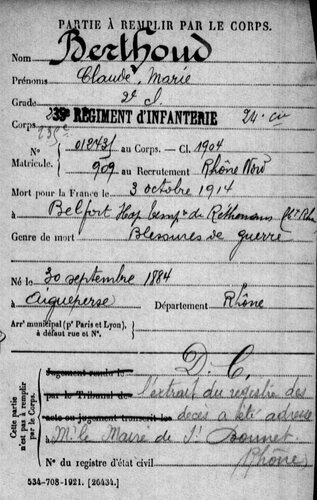 PARTIE À REMPLIR PAR LE CORPS.
Nom Berthoud
Prénoms Claude, Marie
Grade 2e cl.
Corps 39e RÉGIMENT D'INFANTERIE 24e cie
239e
N° 012431 au Corps. — Cl. 1904
Matricule. 909 au Recrutement Rhône Nord
Mort pour la France le 3 octobre 1914
à Belfort Hop temp^re de Rethenans
Genre de mort Blessures de guerre
Né le 30 septembre 1884
à Aigueperse Département Rhône
Arr^t municipal (p^r Paris et Lyon),
à défaut rue et N°.
D. C.
Cette partie n'est pas à remplir par le Corps.
Jugement rendu le
par le Tribunal de l'extrait du registre des
acte ou jugement transcrit le décès a été adressé
à M. le Maire de S^t Bonnet
(Rhône)
N° du registre d'état civil
534-708-1921. [26434.]